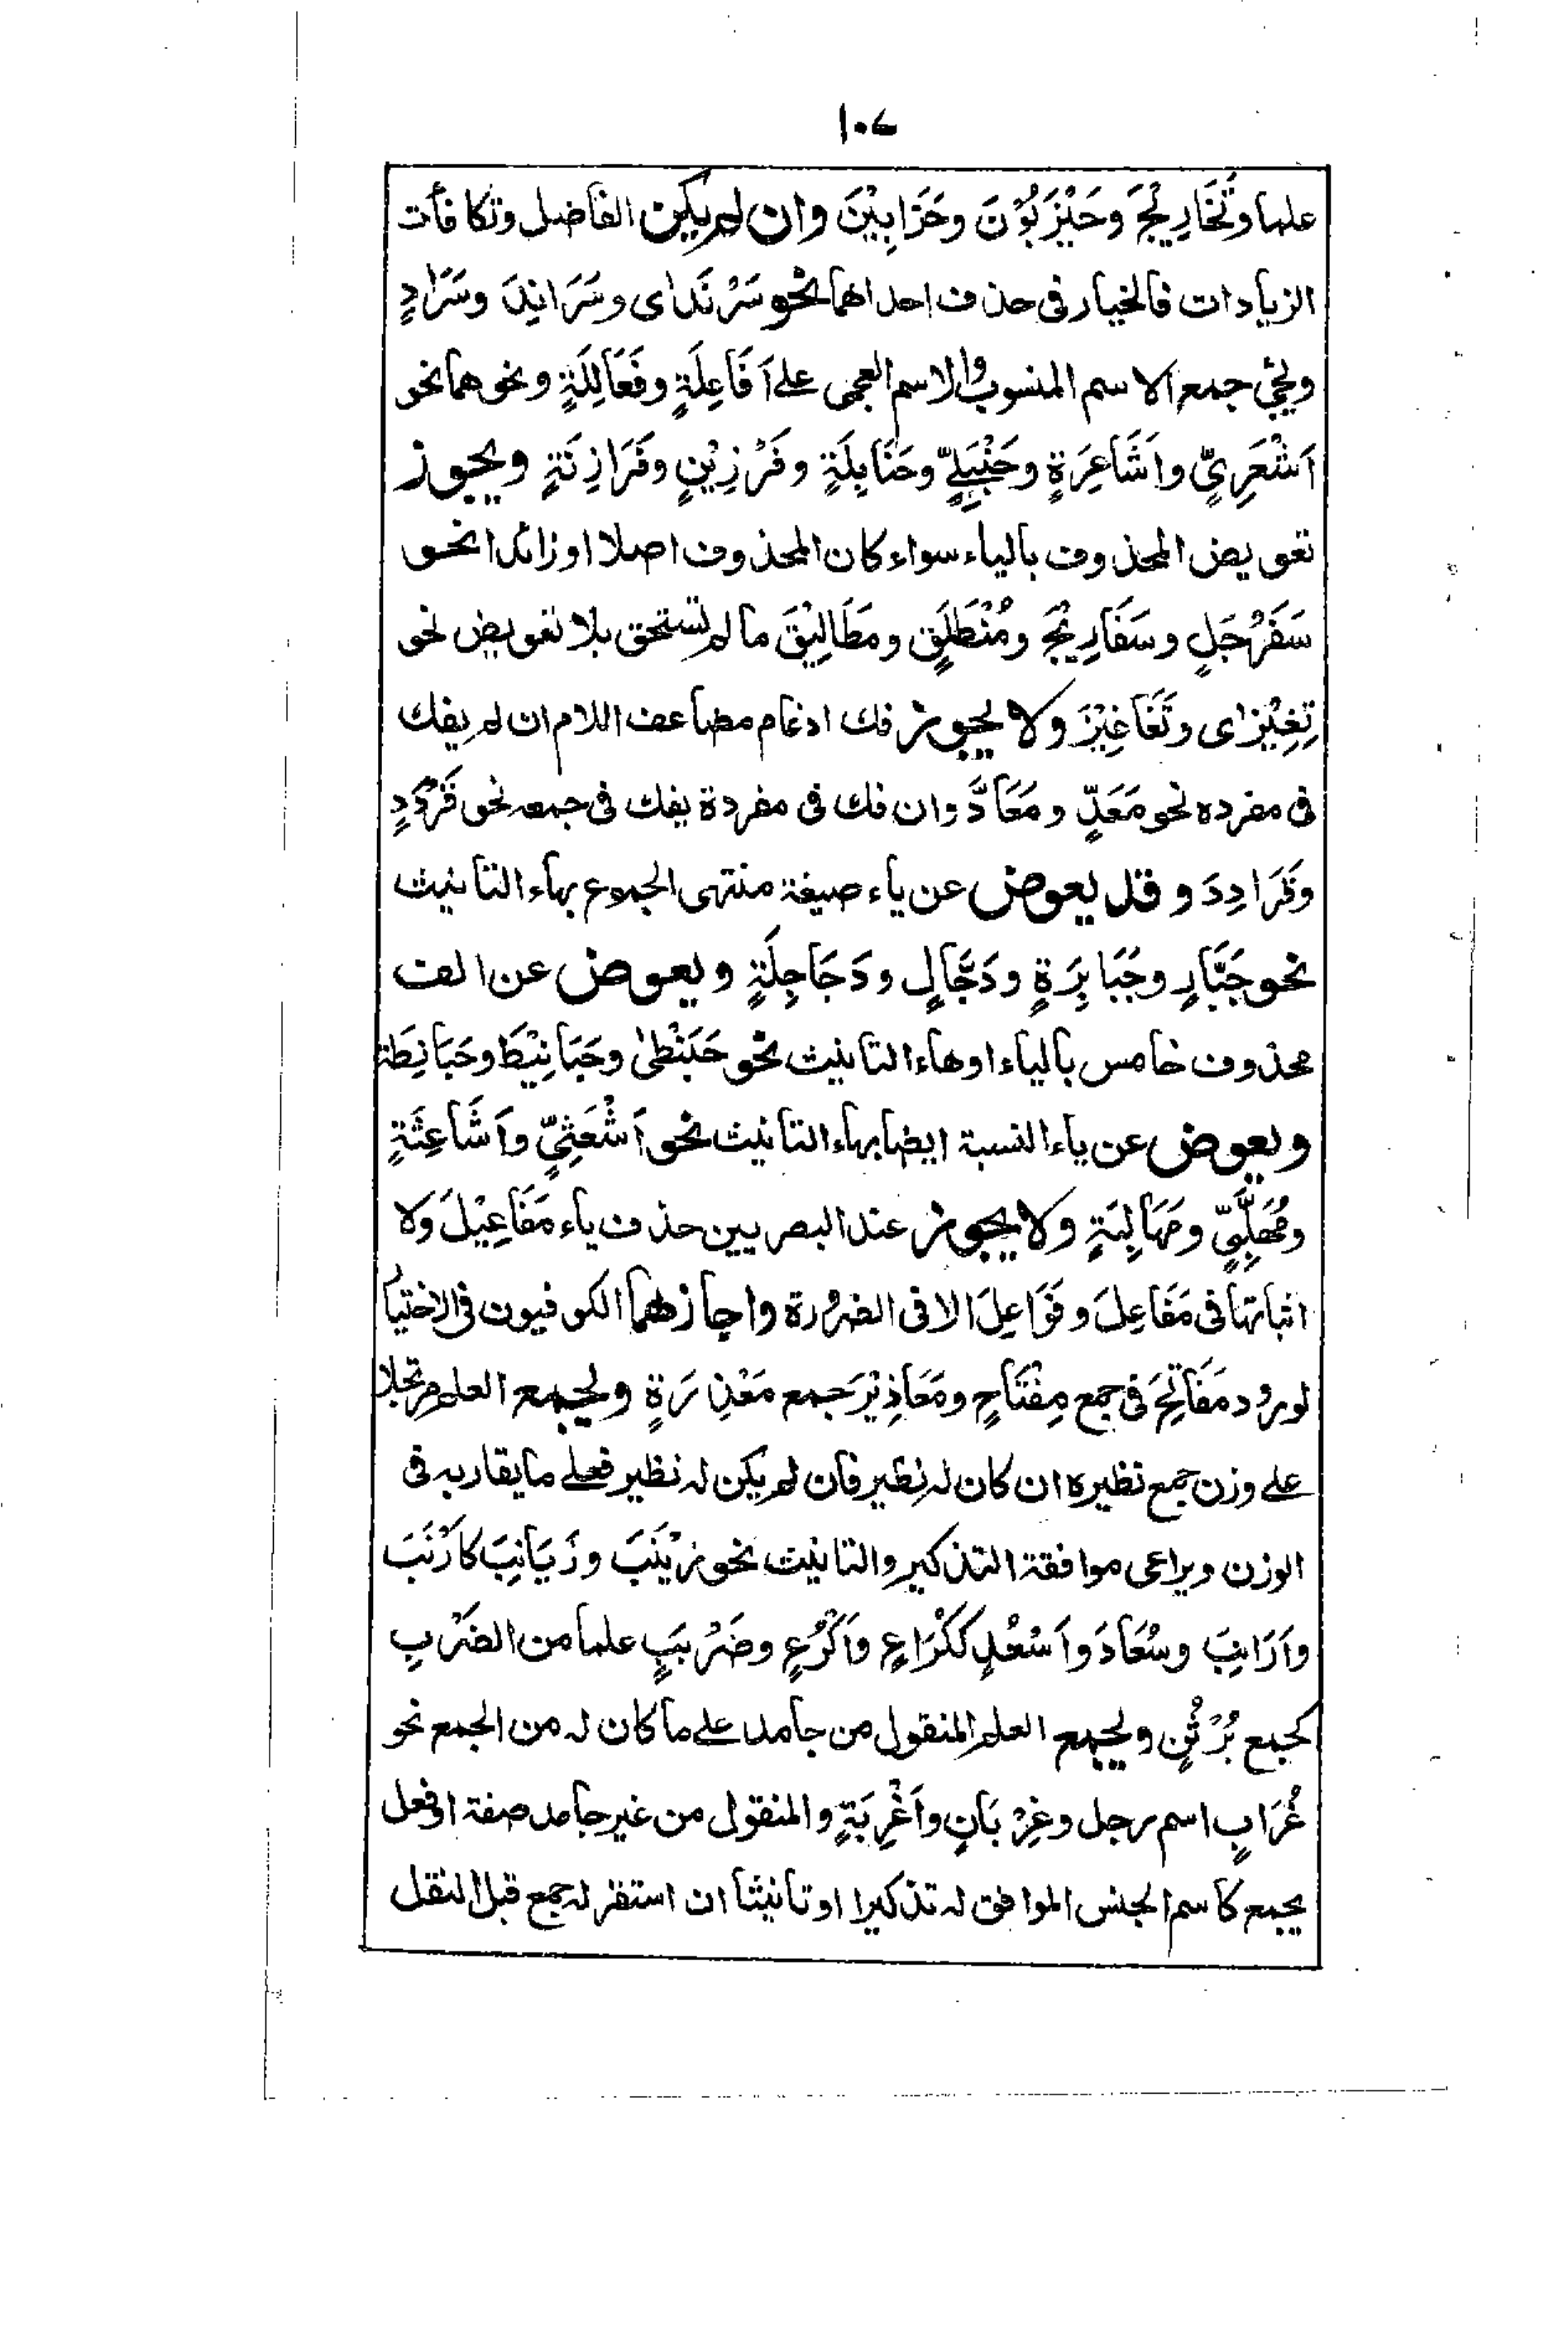 ١٠٧
علما وتَخَارِيْجَ وحَيْزَبُوْنَ وحَزَابِيْنَ وان لم يكن الفاضل وتكافأت
الزيادات فالخيار فى حذف احداهما نحو سَرْنَدَاى وسَرَانِدَ وسَرَادٍ
ويجئ جمع الاسم المنسوب والاسم العجمى على اَفَاعِلَةٍ وفَعَالِلَةٍ ونحوهما نحو
اَشْعَرِيٍّ واَشَاعِرَةٍ وحَنْبَلِيٍّ وحَنَابِلَةٍ وفَرْزِيْنٍ وفَرَازِنَةٍ ويجوز
تعويض المحذوف بالياء سواء كان المحذوف اصلا او زائدا نحو
سَفَرْجَلٍ وسَفَارِيْجَ ومُنْطَلِقٍ ومَطَالِيْقَ ما لم تستحق بلا تعويض نحو
تِغِيْزاى وتَغَاغِيْزَ ولا يجوز فك ادغام مضاعف اللام ان لم يفك
فى مفرده نحو مَعَدٍّ ومَعَادَّ وان فك فى مفردة يفك فى جمعه نحو قَرْدَدٍ
وقَرَادِدَ وقد يعوض عن ياء صيغة منتهى الجموع بهاء التانيث
نحو جَبَّارٍ وجَبَابِرَةٍ ودَجَّالٍ ودَجَاجِلَةٍ ويعوض عن الف
محذوف خامس بالياء اوهاء التانيث نحو حَبَنْطٰى وحَبَانِيْطَ وحَبَانِطَة
ويعوض عن ياء النسبة ايضا بهاء التانيث نحو اَشْعَثِيٍّ واَشَاعِثَةٍ
ومُهَلَّبِيٍّ ومَهَالِبَةٍ ولا يجوز عند البصريين حذف ياء مَفَاعِيْلَ وَلا
اثباتها فى مَفَاعِلَ وفَوَاعِلَ الا فى الضرورة واجازهما الكوفيون فى الاختيار
لورود مَفَاتِحَ فى جمع مِفْتَاحٍ ومَعَاذِيْرَ جمع مَعْذِرَةٍ ويجمع العلم مرتجلا
على وزن جمع نظيره ان كان له نظير فان لم يكن له نظير فعلى ما يقاربه فى
الوزن ويراعى موافقة التذكير والتانيث نحو زَيْنَبَ وزَيَانِبَ كاَرْنَبَ
واَرَانِبَ وسُعَادَ واَسْعُدٍ ككُرَاعٍ واَكْرُعٍ وضَرْبَبٍ علما من الضَرْبِ
كجمع بُرْثُنٍ ويجمع العلم المنقول من جامد على ما كان له من الجمع نحو
غُرَابٍ اسم رجل وغِرْبَانٍ واَغْرِبَةٍ والمنقول من غير جامد صفة او فعل
يجمع كاسم الجنس الموافق له تذكيرا او تانيثا ان استقر له جمع قبل النقل